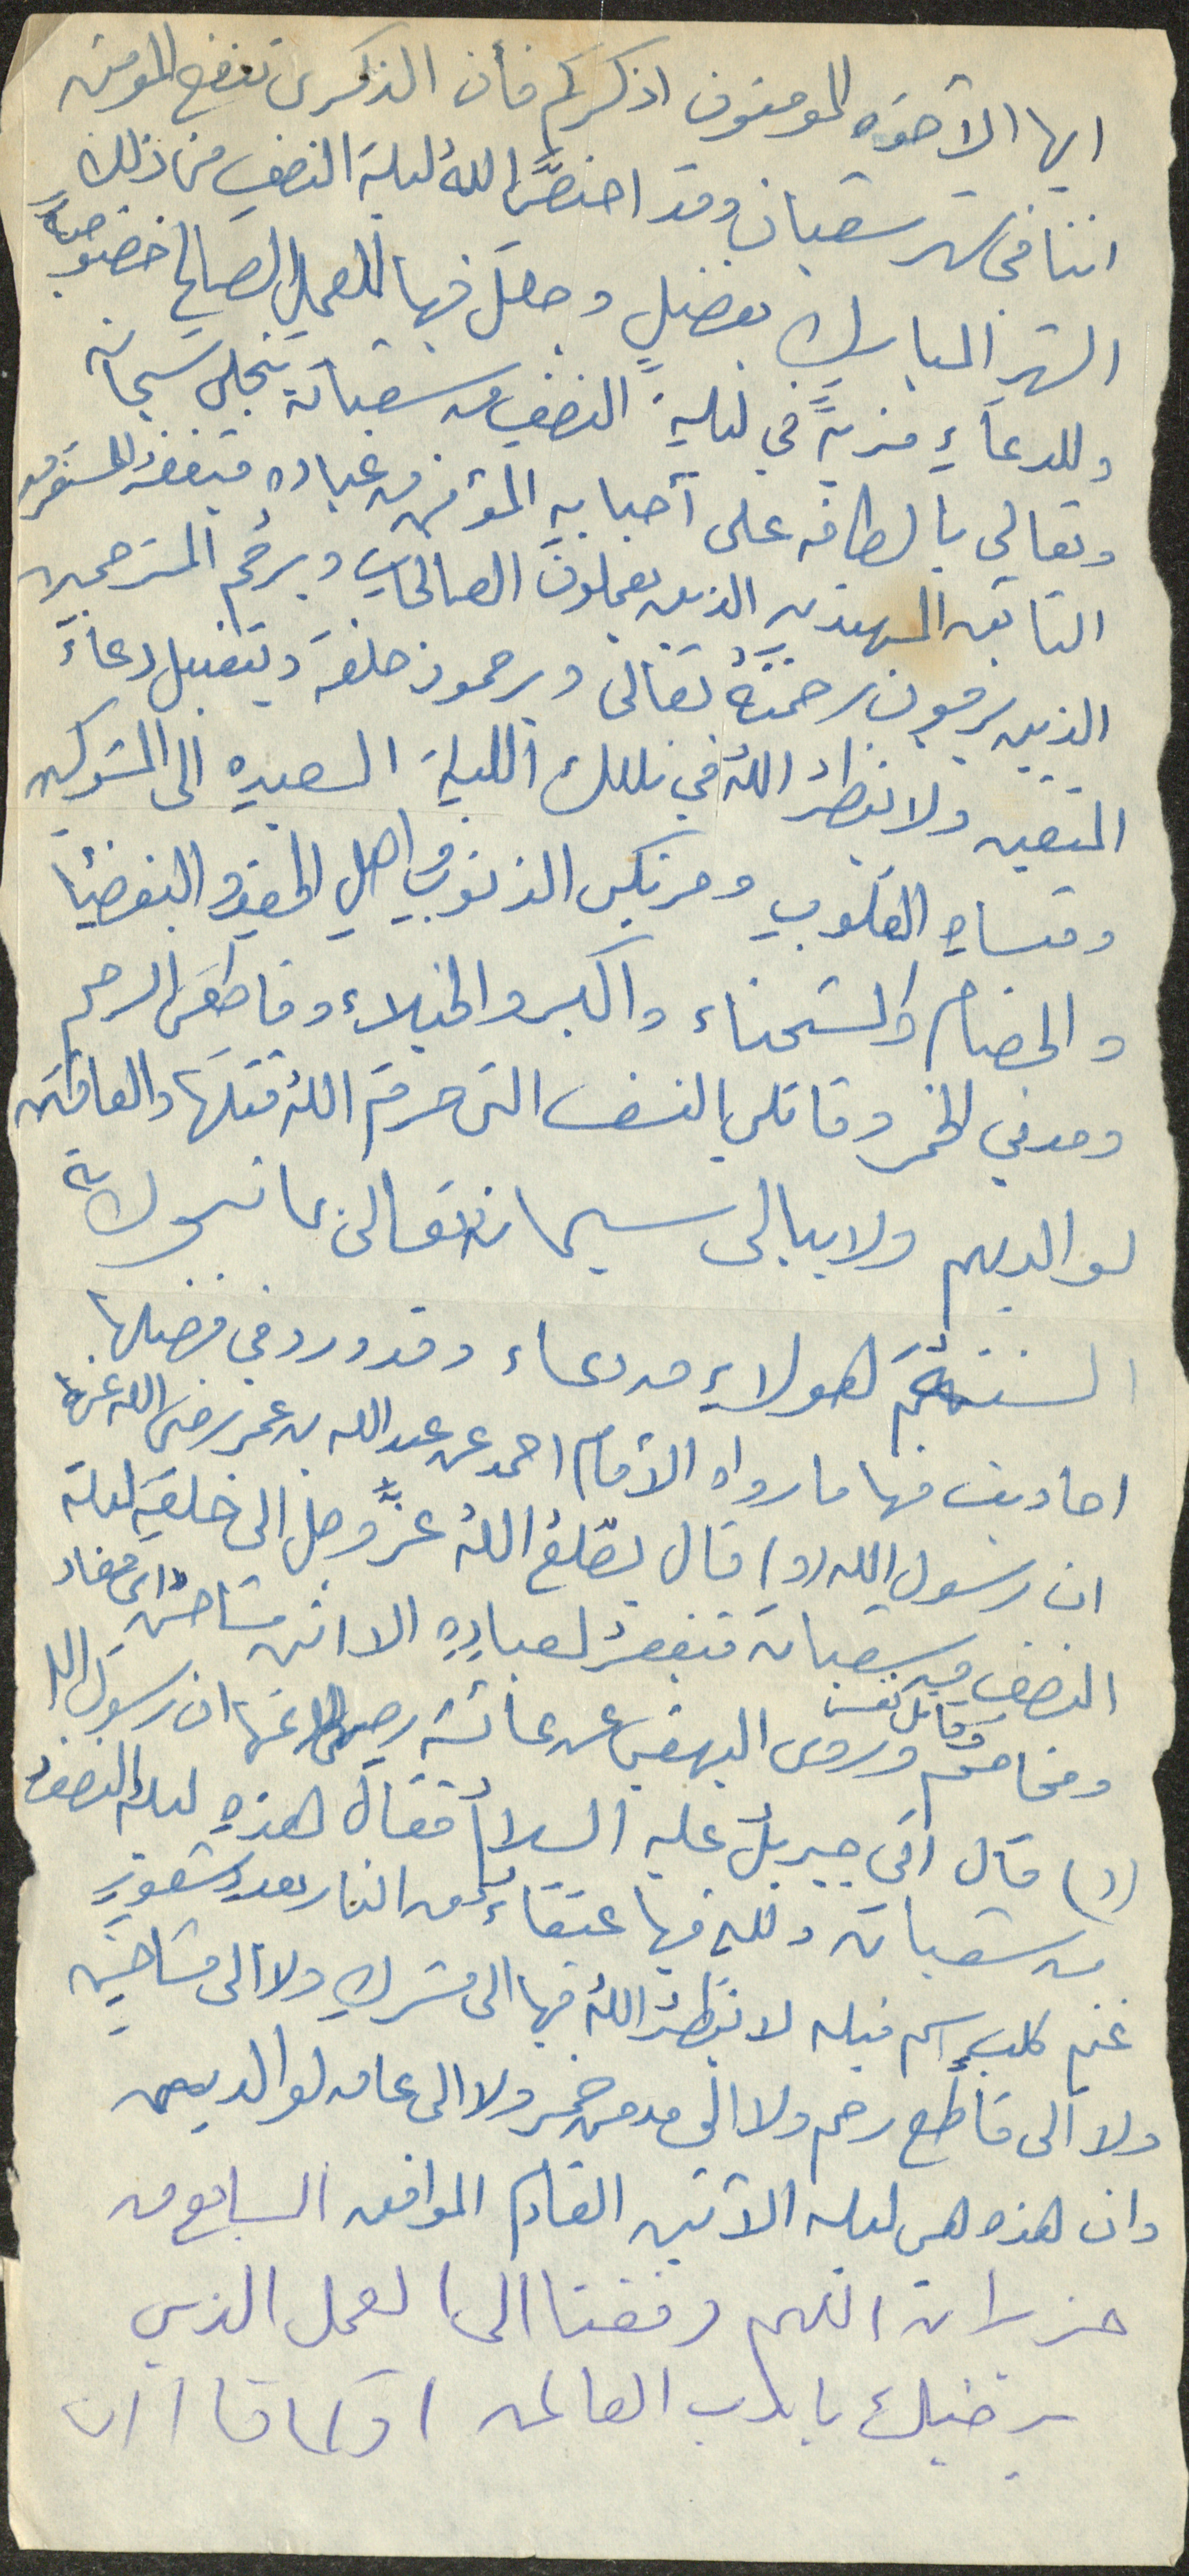 ايها الأخوه المومنون اذكركم فأن الذكرى تنفع المومنين
اننا في شهر شعبان وقد اختصَّ اللهُ ليلة النصفِ من ذلك
الشهر المبارك بفضلٍ وجعلَ فيها للعملِ الصالحِ خصوصيةً
وللدعاءِ مزيةً في ليلةِ النصفِ من شعبان يتجلى سبحانه
وتعالى بالطافه على أحبابهِ المؤمنين من عبادهِ فيغفرُ للمستغفرين
التائبين المهتدين الذين يعملون الصالحات ويرحم المسترحمين
الذين يرجون رحمتهُ تعالى ويرحمون خلقه ويتقبل دعاءَ
المتقين ولا ينظرُ اللهُ في تلك الليلة السعيده الى المشركين
وقساةِ القلوبِ ومرتكبي الذنوبِ واهلِ الحقدِ والبغضاء
والخصام والشحناء والكبر والخيلاء وقاطعي الرحم
ومدمني الخمر وقاتلي النفس التي حرمَ اللهُ قتلَها والعاقين
لوالديهم ولا يبالي سبحانه تعالى بما تحرك به
السنتهُم لهولاءِ من دعاء وقد ورد في فضلها
احاديث منها ما رواه الأمام احمد عن عبد الله بن عمر رضى الله عنها
ان رسول الله (ص) قال يطّلعُ اللهُ عزَّ وجل الى خلقهِ ليلة
النصفِ من شعبان فيغفرُ لعبادهِ الا اثنين مشاحن اى معاد
ومخاصم وقاتل نفس وروى البيهقي عن عائشة رضي الله عنها ان رسول الله
(ص) قال أتى جبريلُ عليه السلام فقال هذهِ ليلة النصف
من شعبان وللهِ فيها عتقاءُ من النار بعددِ شعورِ
غنم كلبٍ اسم قبيله لا ينظرُ اللهُ فيها الى مشركٍ ولا الى مشاحنٍ
ولا الى قاطع رحم ولا الى مدمن خمر ولا الى عاق لوالديه
وان هذه هي ليلة الأثنين القادم الموافق السابع من
حزيران اللهم وفقنا الى العمل الذي
يرضيك يا رب العالمين او كما قال